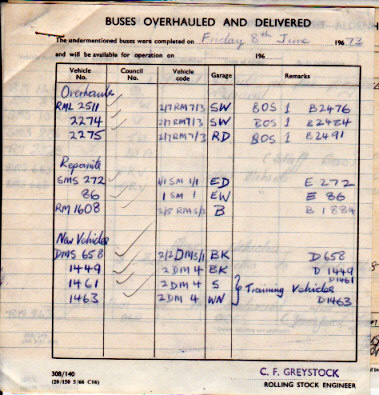 BUSES OVERHAULED AND DELIVERED
The undermentioned buses were completed on Friday 8th June 1973
and will be available for operation on 196
Vehicle No. Council No. Vehicle code Garage Remarks
Overhauls
RML 2511 2/7 RM7/3 SW BOS 1 B2476
2274 2/7 RM7/3 SW BOS 1 B2484
2275 2/7 RM7/3 RD BOS 1 B2491
Repaints
SMS 272 1/1 SM 1/1 ED E 272
86 1 SM 1 EW E 86
RM 1608 2/5 RM5/3 B B 1884
New Vehicles
DMS 658 2/2 DM3/1 BK D 658
1449 2 DM 4 BK D 1449
1461 2 DM 4 S D1461
1463 2 DM 4 WN Training Vehicles D1463
308/140
(20/150 5/66 C16)
C. F. GREYSTOCK
ROLLING STOCK ENGINEER